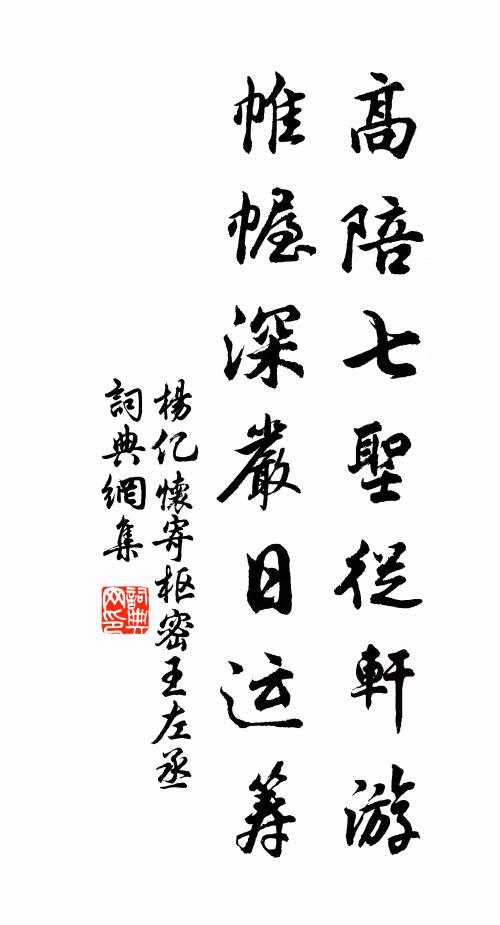 高陪七聖從軒游
帷幄深嚴日运筹
楊亿懷寄枢密王左丞
詞典網集
詞典
网印